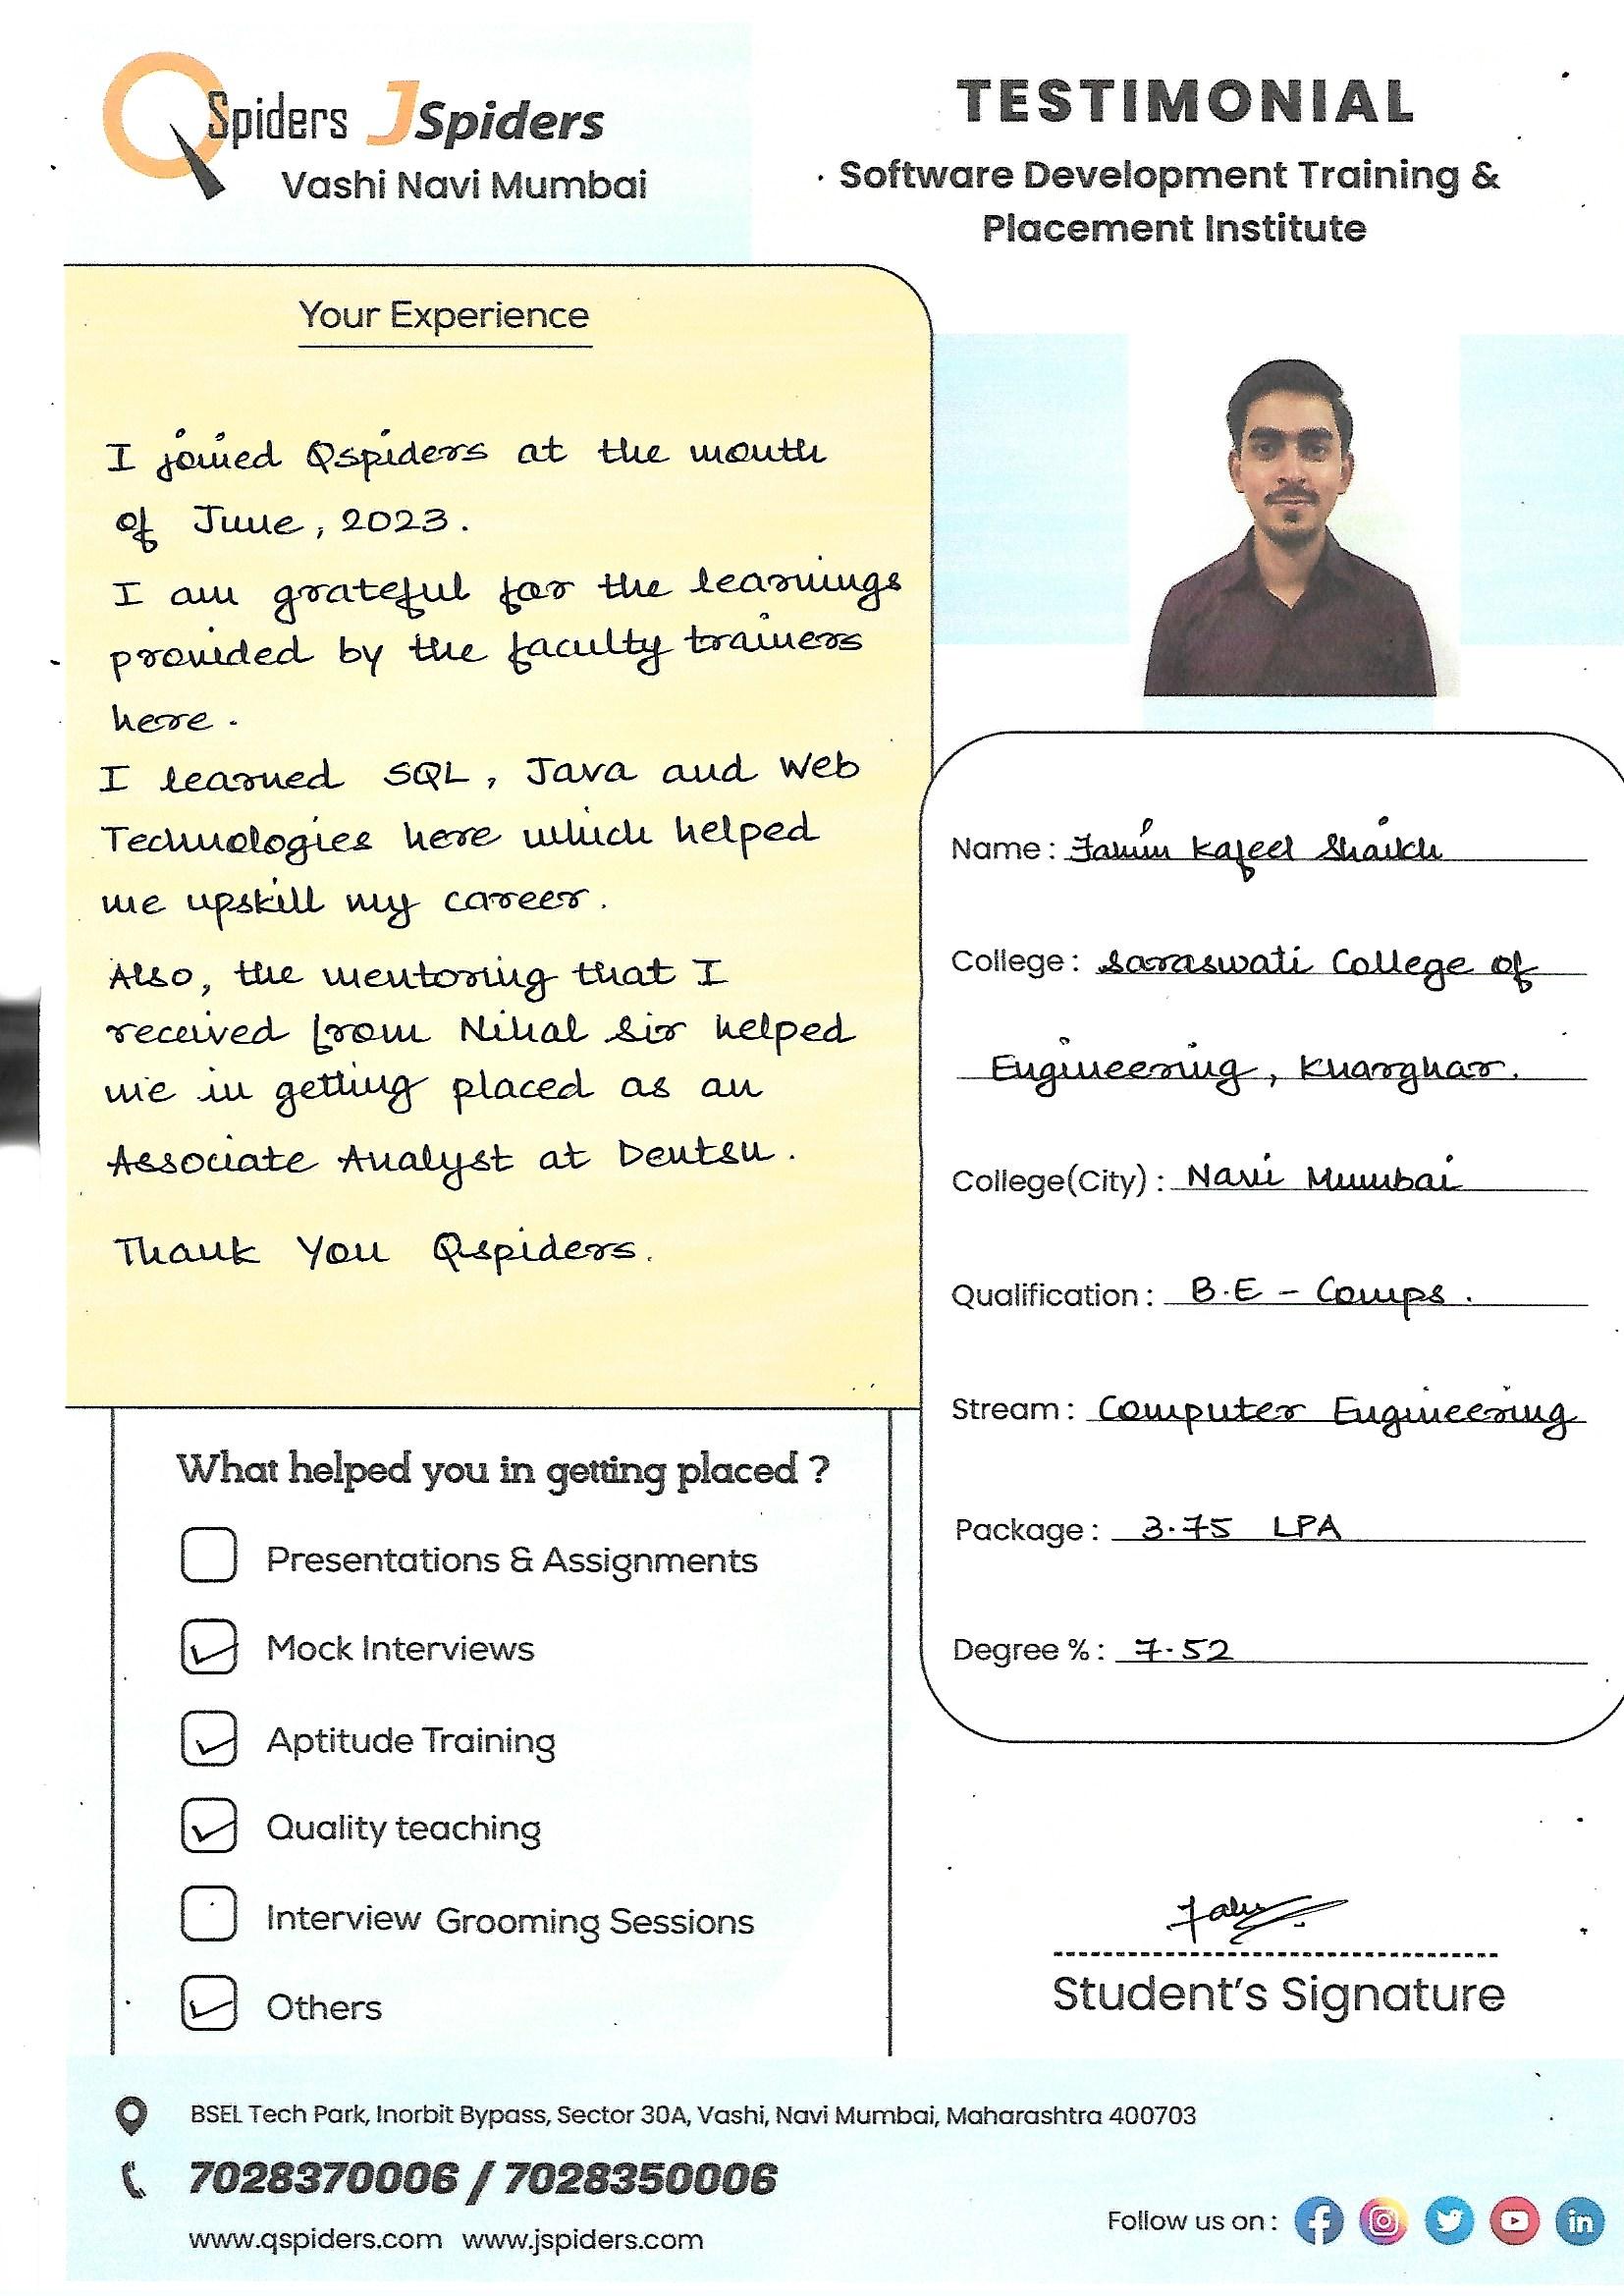 QSpiders JSpiders
Vashi Navi Mumbai
TESTIMONIAL
Software Development Training &
Placement Institute
Your Experience
I joined Qspiders at the month
of June, 2023.
I am grateful for the learnings
provided by the faculty trainers
here.
I learned SQL, Java and Web
Technologies here which helped
me upskill my career.
Also, the mentoring that I
received from Nihal Sir helped
me in getting placed as an
Associate Analyst at Dentsu.
Thank You Qspiders.
Name: Kafeel Shaikh
College: Saraswati College of
Engineering, Kharghar.
College(City): Navi Mumbai
Qualification: B.E - Comps.
Stream: Computer Engineering
Package: 3.75 LPA
Degree %: 7.52
What helped you in getting placed ?
Presentations & Assignments
Mock Interviews
Aptitude Training
Quality teaching
Interview Grooming Sessions
Others
Student's Signature
BSEL Tech Park, Inorbit Bypass, Sector 30A, Vashi, Navi Mumbai, Maharashtra 400703
7028370006 / 7028350006
www.qspiders.com www.jspiders.com
Follow us on: